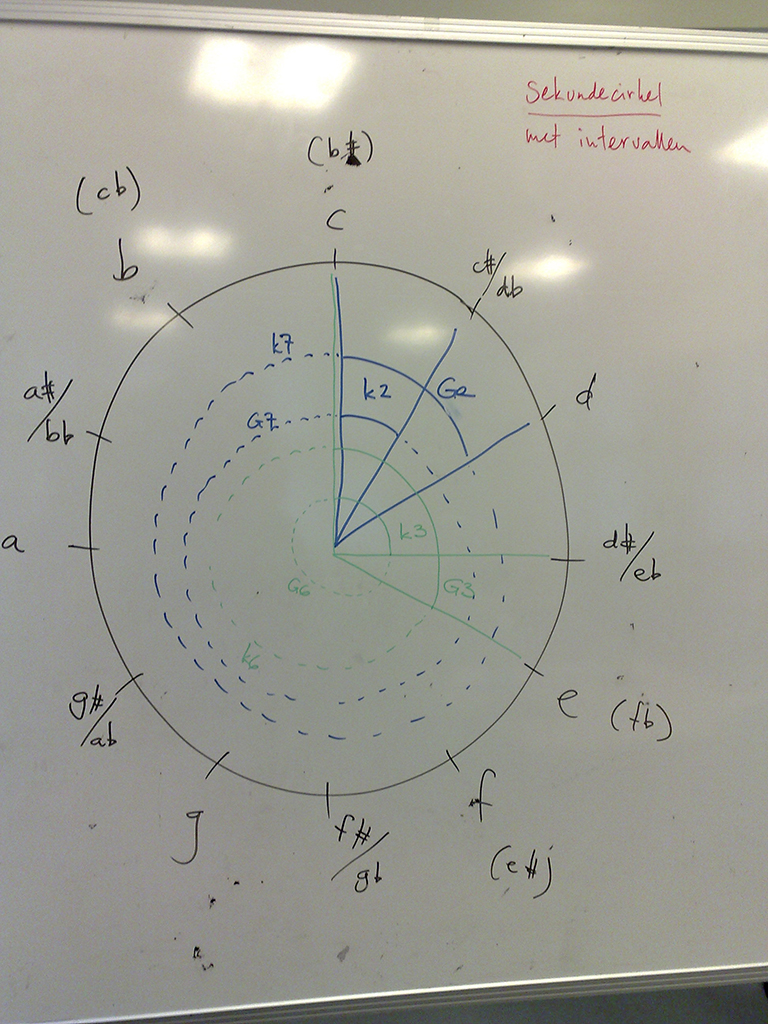 Sekundecirkel
met intervallen
(b#)
(cb)
c
b
c#/
db
k7
k2
G2
a#/
bb
d
G7
a
k3
d#/
eb
G6
G3
k6
g#/
ab
e
(fb)
f
g
f#/
gb
(e#)